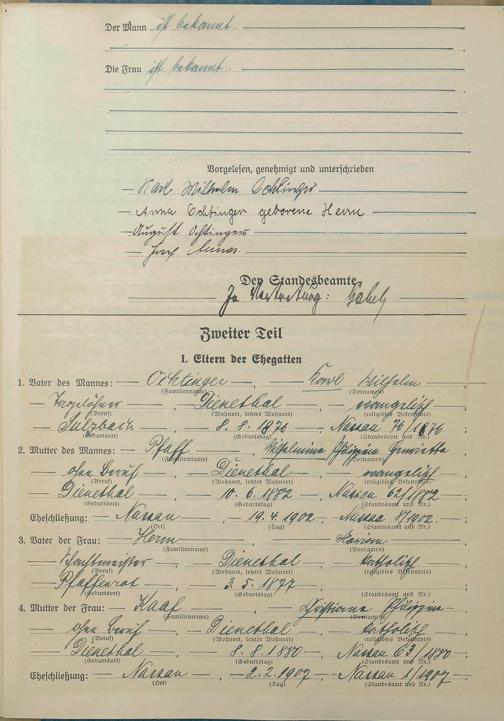 Der Mann ist bekannt.
Die Frau ist bekannt.
Vorgelesen, genehmigt und unterschrieben
Karl Wilhelm Ochtinger
Anna Ochtinger geborene Herm
August Ochtinger
Der Standesbeamte
In Vertretung:
Zweiter Teil
I. Eltern der Ehegatten
1. Vater des Mannes: — Ochtinger —, — Karl Wilhelm —
(Familienname) (Vornamen)
— Dienethal — evangelisch
(Beruf) (Wohnort, letzter Wohnort) (religiöses Bekenntnis)
— Sulzbach — 8. 8. 1876 — Nassau 76/1876
(Geburtsort) (Geburtstag) (Standesamt und Nr.)
2. Mutter des Mannes: — Pfaff — Wilhelmine Philippine Henriette
(Familienname) (Vornamen)
— ohne Beruf — Dienethal — evangelisch
(Beruf) (Wohnort, letzter Wohnort) (religiöses Bekenntnis)
— Dienethal — 10. 6. 1882 — Nassau 62/1882
(Geburtsort) (Geburtstag) (Standesamt und Nr.)
Eheschließung: — Nassau — 19. 4. 1902 — Nassau 8/1902
(Ort) (Tag) (Standesamt und Nr.)
3. Vater der Frau: — Herm —
(Familienname) (Vornamen)
— Dienethal — katholisch
(Beruf) (Wohnort, letzter Wohnort) (religiöses Bekenntnis)
— Pfaffenrot — 3. 5. 1877
(Geburtsort) (Geburtstag) (Standesamt und Nr.)
4. Mutter der Frau: — Kaaf — Christiane Philippine
(Familienname) (Vornamen)
— ohne Beruf — Dienethal — katholisch
(Beruf) (Wohnort, letzter Wohnort) (religiöses Bekenntnis)
Dienethal — 8. 8. 1880 — Nassau 63/1880
(Geburtsort) (Geburtstag) (Standesamt und Nr.)
Eheschließung: — Nassau — 2. 2. 1907 — Nassau 1/1907
(Ort) (Tag) (Standesamt und Nr.)